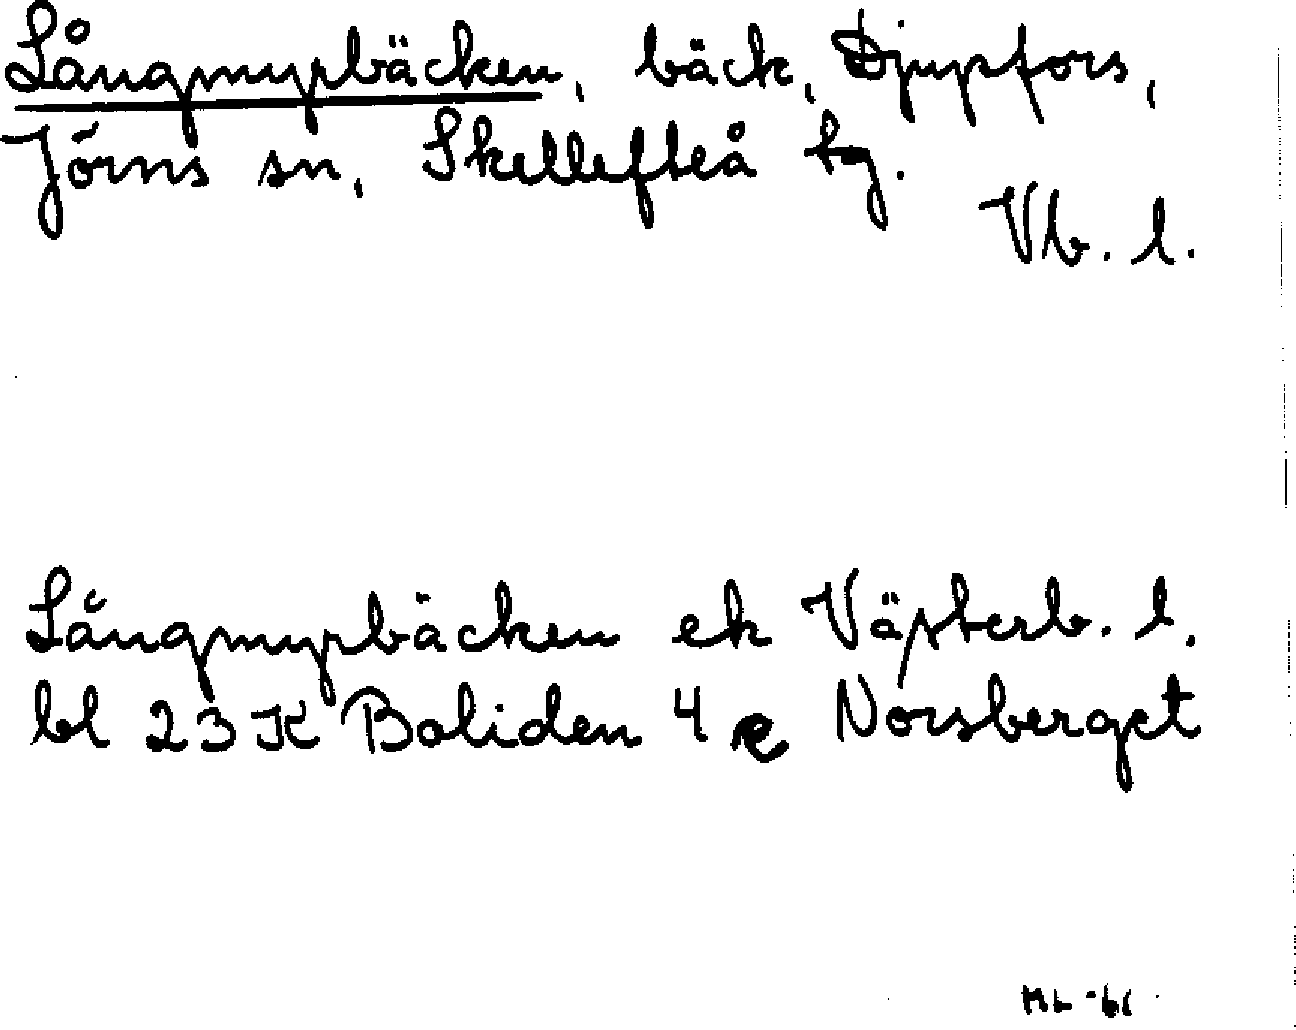 Långmyrbäcken, bäck, Djupfors,
Jörns sn, Skellefteå tg.
Vb. l.
Långmyrbäcken ek Västerb. l.
bl 23 K Boliden 4 e Norsberget